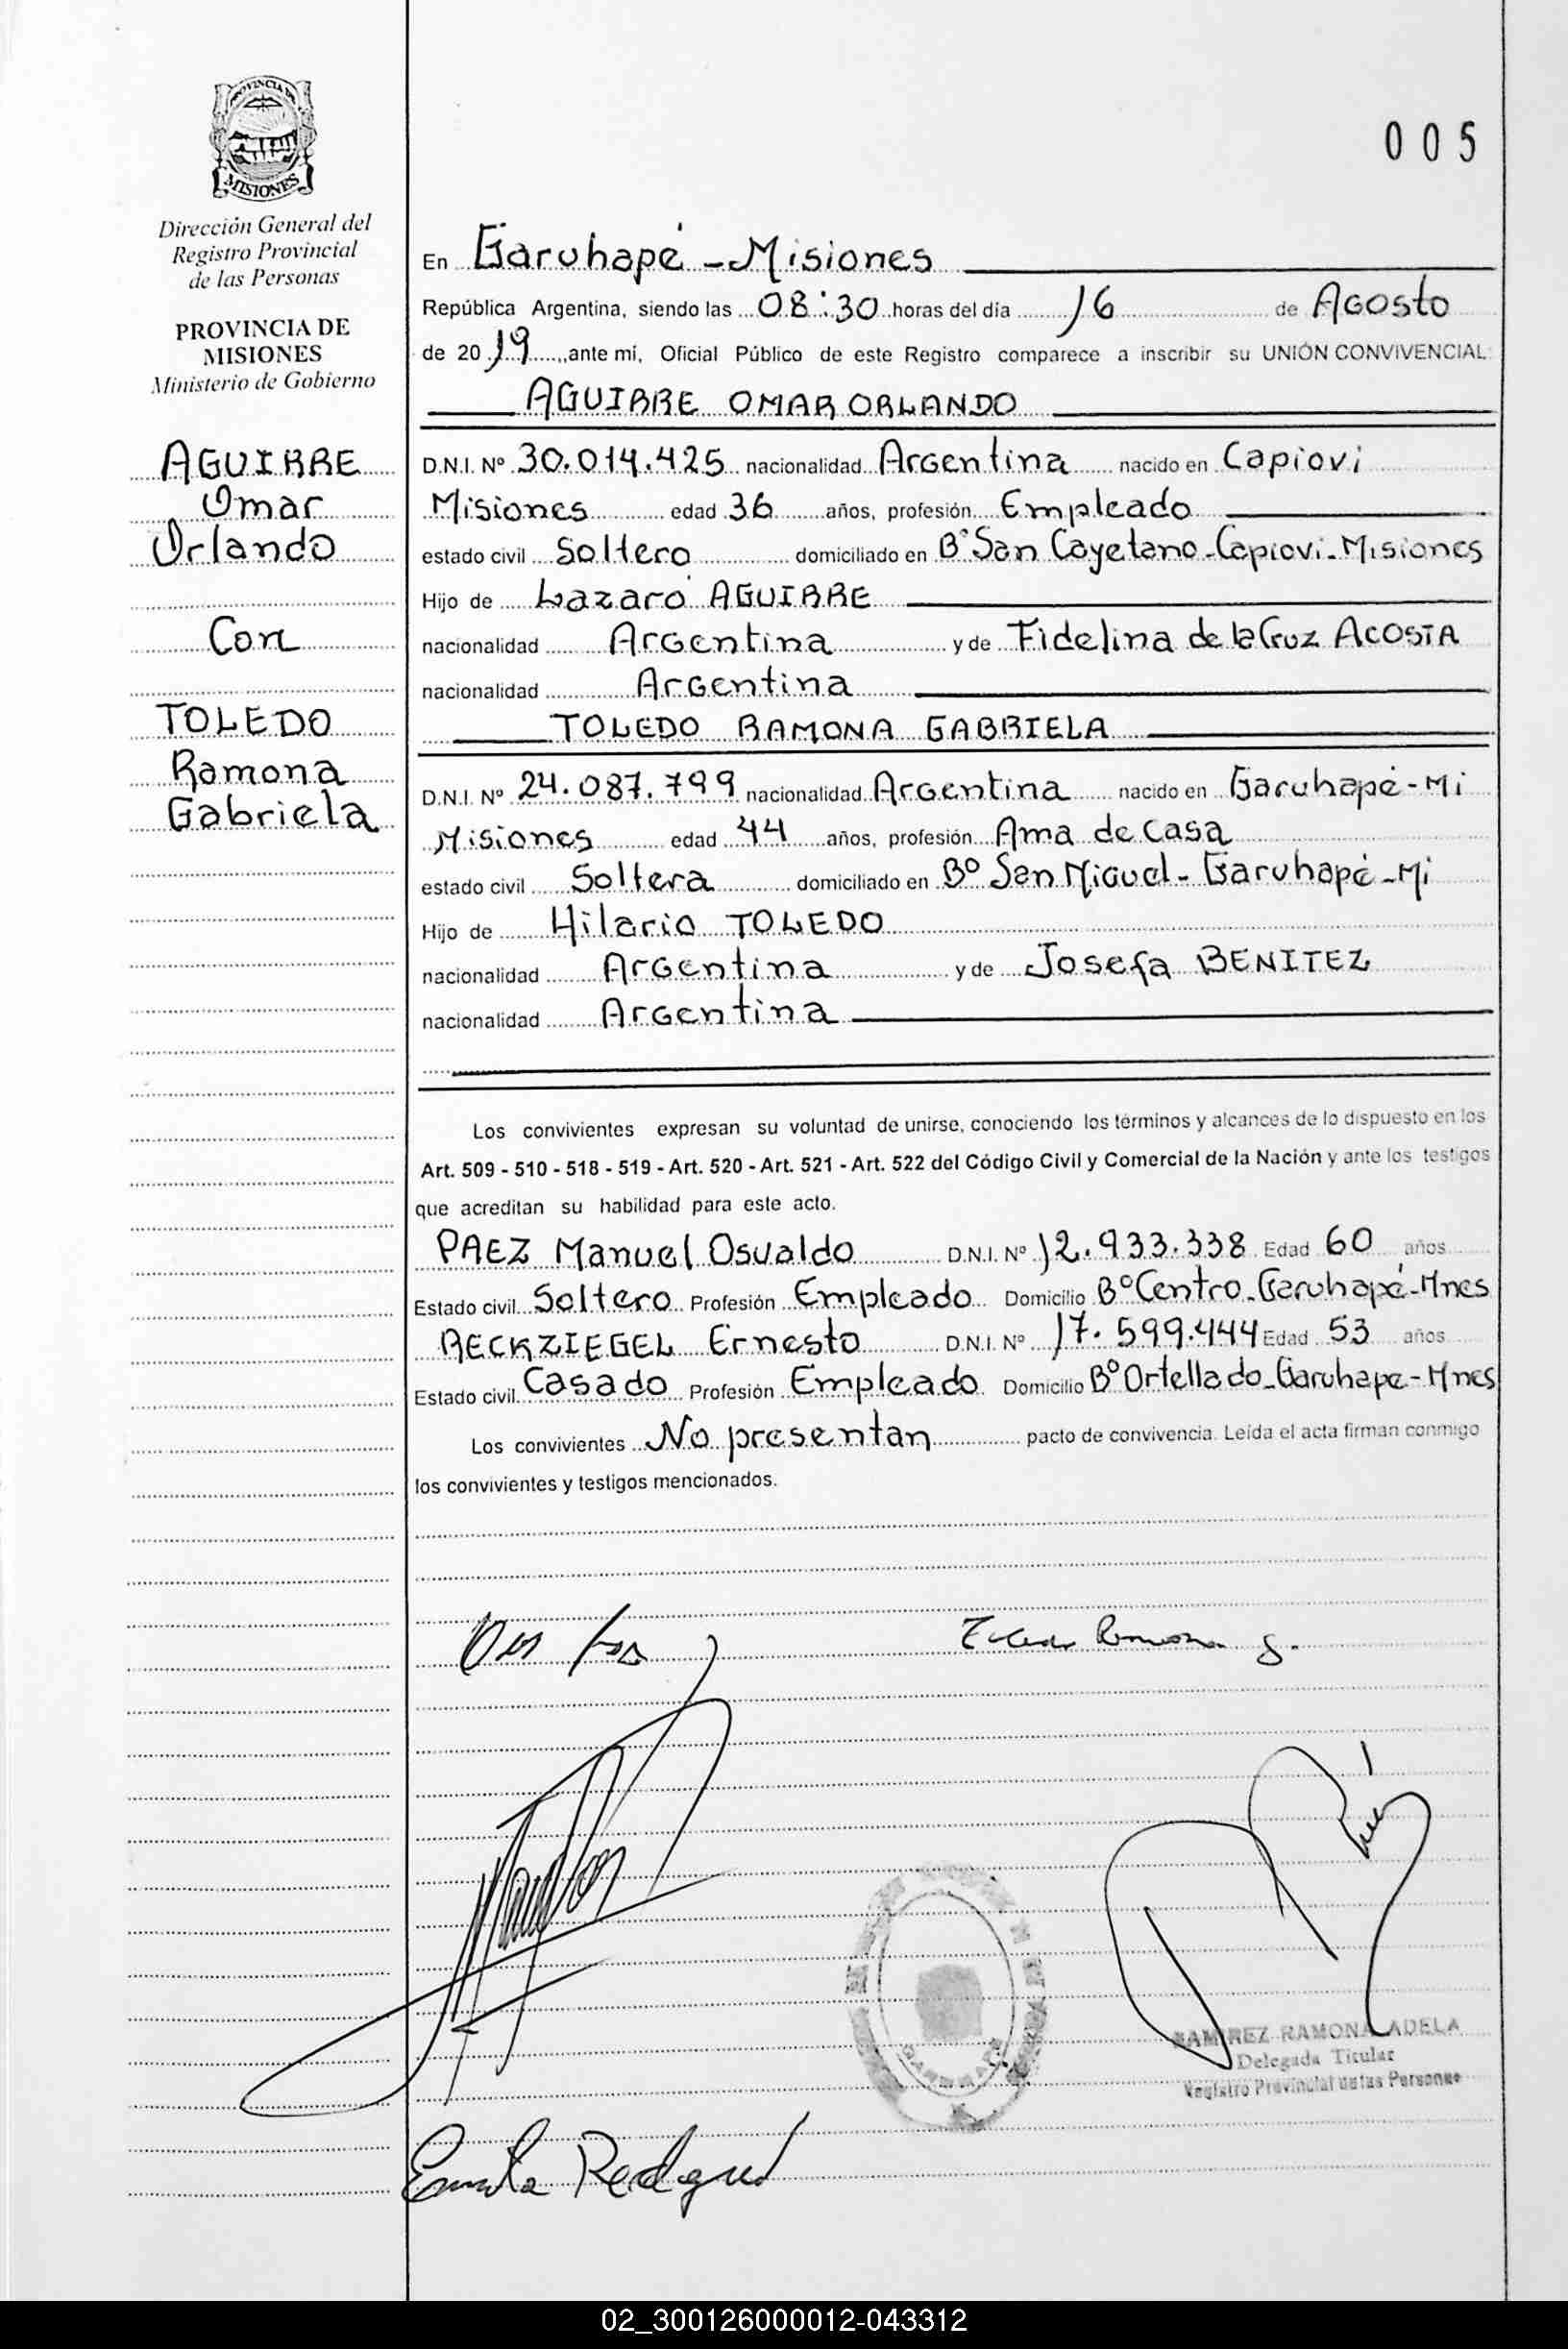 PROVINCIA DE
MISIONES
Dirección General del
Registro Provincial
de las Personas
PROVINCIA DE
MISIONES
Ministerio de Gobierno
AGUIRRE
Omar
Orlando
Con
TOLEDO
Ramona
Gabriela
005
En Garuhapé - Misiones
República Argentina, siendo las 08:30 horas del día 16 de Agosto
de 2019, ante mí, Oficial Público de este Registro comparece a inscribir su UNIÓN CONVIVENCIAL:
AGUIRRE OMAR ORLANDO
D.N.I. Nº 30.014.425 nacionalidad Argentina nacido en Capiovi
Misiones edad 36 años, profesión Empleado
estado civil Soltero domiciliado en Bº San Cayetano - Capiovi - Misiones
Hijo de Lazaro AGUIRRE
nacionalidad Argentina y de Fidelina de la Cruz ACOSTA
nacionalidad Argentina
TOLEDO RAMONA GABRIELA
D.N.I. Nº 24.087.799 nacionalidad Argentina nacido en Garuhapé - Mi
Misiones edad 44 años, profesión Ama de Casa
estado civil Soltera domiciliado en Bº San Miguel - Garuhapé - Mi
Hijo de Hilario TOLEDO
nacionalidad Argentina y de Josefa BENITEZ
nacionalidad Argentina
Los convivientes expresan su voluntad de unirse, conociendo los términos y alcances de lo dispuesto en los
Art. 509 - 510 - 518 - 519 - Art. 520 - Art. 521 - Art. 522 del Código Civil y Comercial de la Nación y ante los testigos
que acreditan su habilidad para este acto.
PAEZ Manuel Osvaldo D.N.I. Nº 12.933.338 Edad 60 años
Estado civil Soltero Profesión Empleado Domicilio Bº Centro - Garuhapé - Mnes
RECKZIEGEL Ernesto D.N.I. Nº 17.599.444 Edad 53 años
Estado civil Casado Profesión Empleado Domicilio Bº Ortellado - Garuhape - Mnes
Los convivientes No presentan pacto de convivencia. Leída el acta firman conmigo
los convivientes y testigos mencionados.
Toledo Ramona G.
RAMIREZ RAMONA ADELA
Delegada Titular
Registro Provincial de las Personas
02_300126000012-043312